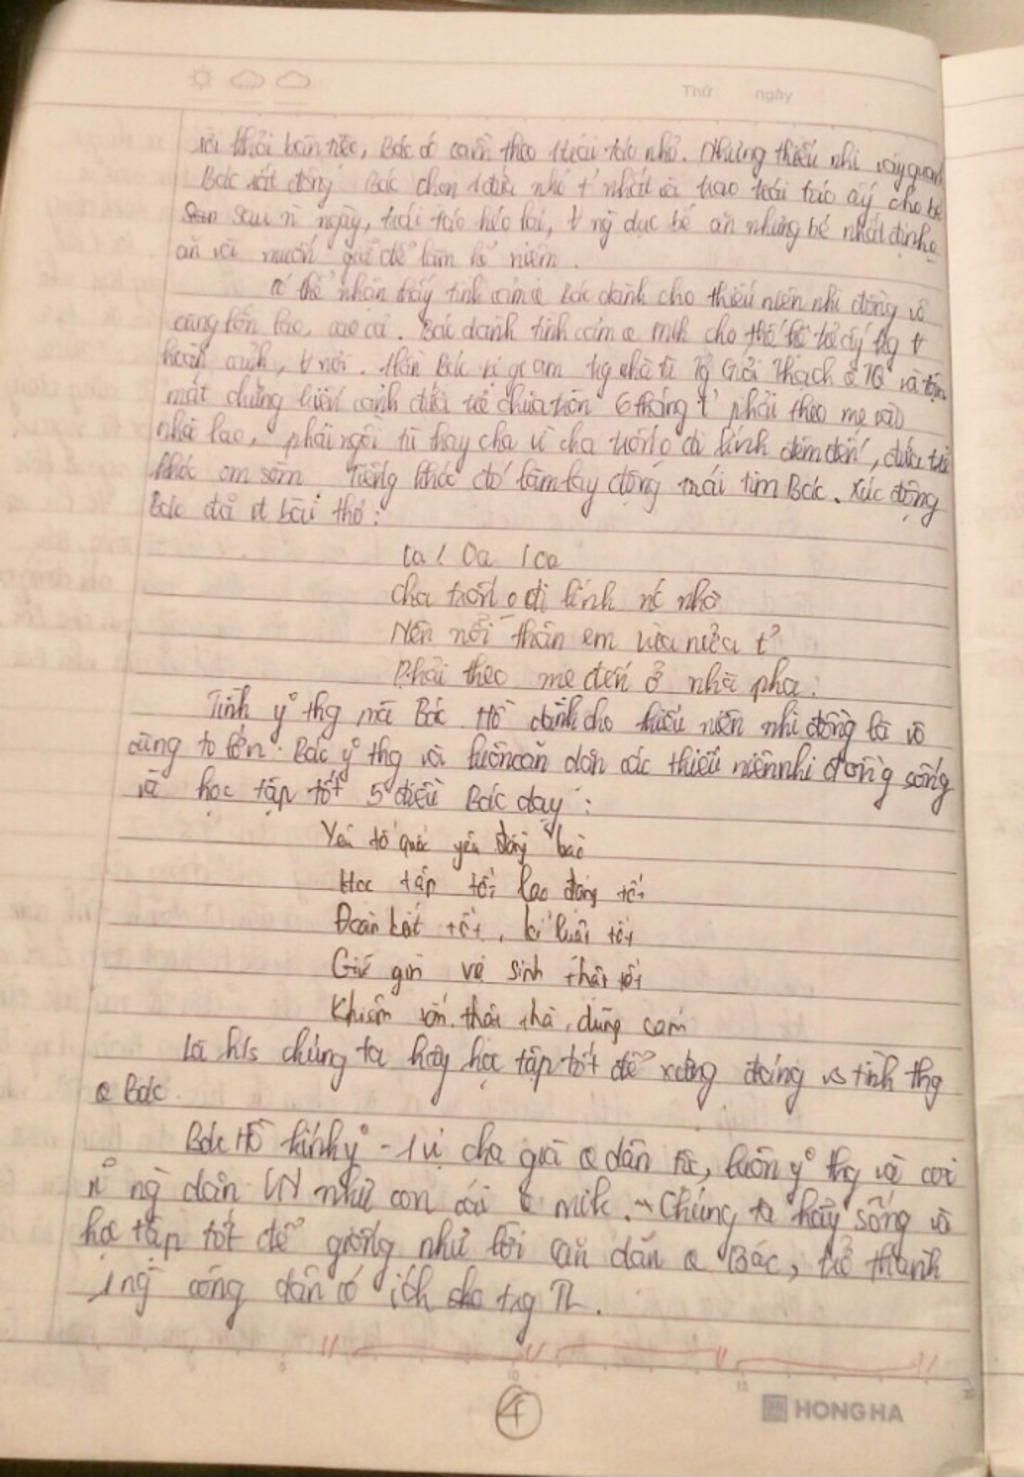 Thứ ngày
rời khỏi bàn tiệc, Bác có cầm theo 1 trái táo nhỏ. Những thiếu nhi vây quanh
Bác rất đông. Bác chọn 1 đứa nhỏ t' nhất và trao trái táo ấy cho bé
sau n ngày, trái táo héo lại, ng dục bé ăn nhưng bé nhất định
ăn và muốn giữ để làm kỉ niệm.
có thể nhận thấy tình cảm Bác dành cho thiếu niên nhi đồng vô
cùng lớn lao, cao cả. Bác dành tình cảm mik cho thế hệ trẻ
hoàn cảnh, nơi. Hồi Bác bị giam tg nhà tù Tg Giới Thạch ở TQ và tận
mắt chứng kiến cảnh đứa trẻ chưa tròn 6 tháng t' phải theo mẹ vào
nhà lao, phải ngồi tù thay cha vì cha trốn o đi lính đêm đến, đứa trẻ
khóc om sòm Tiếng khóc đó làm lay động trái tim Bác. Xúc động
Bác đã bài thơ:
Oa! Oa! Oa
Cha trốn o đi lính nc nhà
Nên nỗi thân em vừa nửa t'
Phải theo mẹ đến ở nhà pha.
Tình y° thg mà Bác Hồ dành cho thiếu niên nhi đồng là vô
cùng to lớn. Bác y° thg và luôn căn dặn các thiếu niên nhi đồng sống
và học tập tốt 5 điều Bác dạy:
Yêu tổ quốc yêu đồng bào
Học tập tốt lao động tốt
Đoàn kết tốt, kỉ luật tốt
Giữ gìn vệ sinh thật tốt
Khiêm tốn, thật thà, dũng cảm
Là h/s chúng ta hãy học tập tốt để xứng đáng vs tình thg
Bác.
Bác Hồ kính y° - 1 vị cha già dân tộc, luôn y° thg và coi
ng dân VN như con cái mik. Chúng ta hãy sống và
học tập tốt để giống như lời căn dặn Bác, trở thành
1 ng công dân có ích cho tg TL.
10
15
4
HONG HA